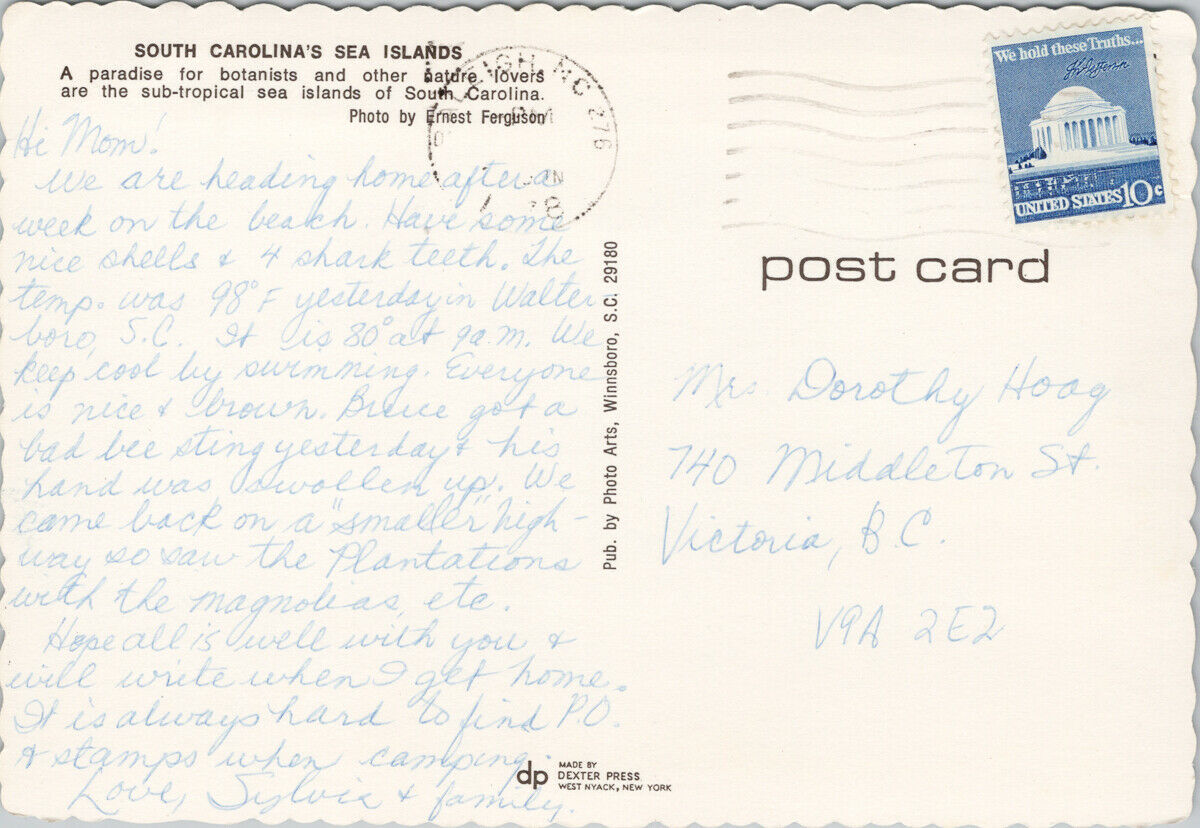 SOUTH CAROLINA'S SEA ISLANDS
A paradise for botanists and other nature lovers
are the sub-tropical sea islands of South Carolina.
Photo by Ernest Ferguson
Hi Mom!
We are heading home after a
week on the beach. Have some
nice shells & 4 shark teeth. The
temp. was 98°F yesterday in Walter
boro, S.C. It is 80° at 9a.m. We
keep cool by swimming. Everyone
is nice & brown. Bruce got a
bad bee sting yesterday & his
hand was swollen up. We
came back on a "smaller" high-
way so saw the Plantations
with the magnolias, etc.
Hope all is well with you &
will write when I get home.
It is always hard to find P.O.
& stamps when camping.
Love, Sylvia & family.
Pub. by Photo Arts, Winnsboro, S.C. 29180
dp MADE BY
DEXTER PRESS
WEST NYACK, NEW YORK
NC 276
PM
We hold these Truths...
UNITED STATES 10c
post card
Mrs. Dorothy Hoag
740 Middleton St.
Victoria, B.C.
V9A 2E2